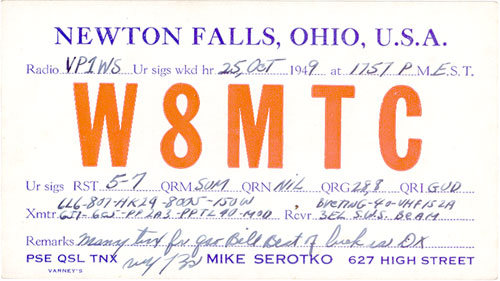 NEWTON FALLS, OHIO, U.S.A.
Radio VP1WS Ur sigs wkd hr 25 Oct 1949 at 1757 P.M.E.S.T.
W8MTC
Ur sigs RST 5-7 QRM SOM QRN NIL QRG 28,8 QRI GUD
6L6-807-HK24-800S-150W 40-VHF152A
Xmtr. Rcvr. 3EL. S.W.S. BEAM
Remarks Manny tnx fr qso Bill Best of luck es DX
PSE QSL TNX 73s MIKE SEROTKO 627 HIGH STREET
VARNEY'S